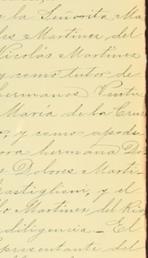 y la Señorita Ma
es Martinez del
Nicolás Martinez
y como tutor de
hermanos Vicente
María de la Cruz
y como apode
hermana Do
Dolores Marti
Castiglioni, y el
Martinez del Rio
diligencia — El
representante del